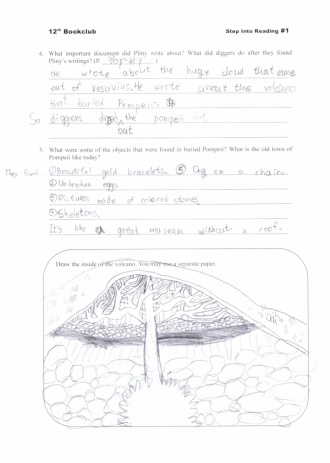 12th Bookclub Step Into Reading #1
4. What important document did Pliny write about? What did diggers do after they found
Pliny's writings? (P )
He wrote about the huge cloud that came
out of vesuvius. He wrote about the volcano
that buried Pompeii.
So diggers the pompeii
out
5. What were some of the objects that were found in buried Pompeii? What is the old town of
Pompeii like today?
They found ① Beautiful gold bracelets. ⑤ Dog on a chain.
② Unbroken eggs
③ Pictures made of colored stones
④ Skeletons.
It's like a great museum without a roof.
Draw the inside of the volcano. You may use a separate paper.